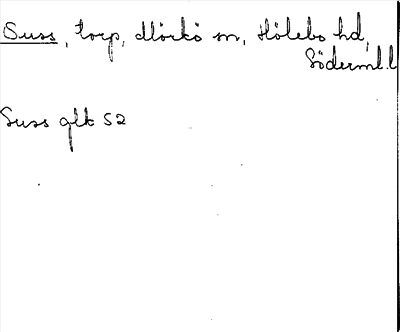 Suss, torp, Mörkö sn, Hölebo hd,
Söderml.l
Suss glk 52